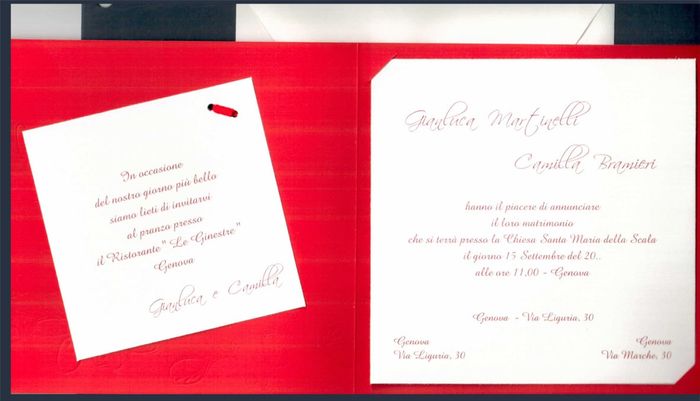 In occasione
del nostro giorno più bello
siamo lieti di invitarvi
al pranzo presso
il Ristorante " Le Ginestre "
Genova
Gianluca e Camilla
Gianluca Martinelli
Camilla Bramieri
hanno il piacere di annunciare
il loro matrimonio
che si terrà presso la Chiesa Santa Maria della Scala
il giorno 15 Settembre del 20..
alle ore 11,00 - Genova
Genova - Via Liguria, 30
Genova
Via Liguria, 30
Genova
Via Marche, 30